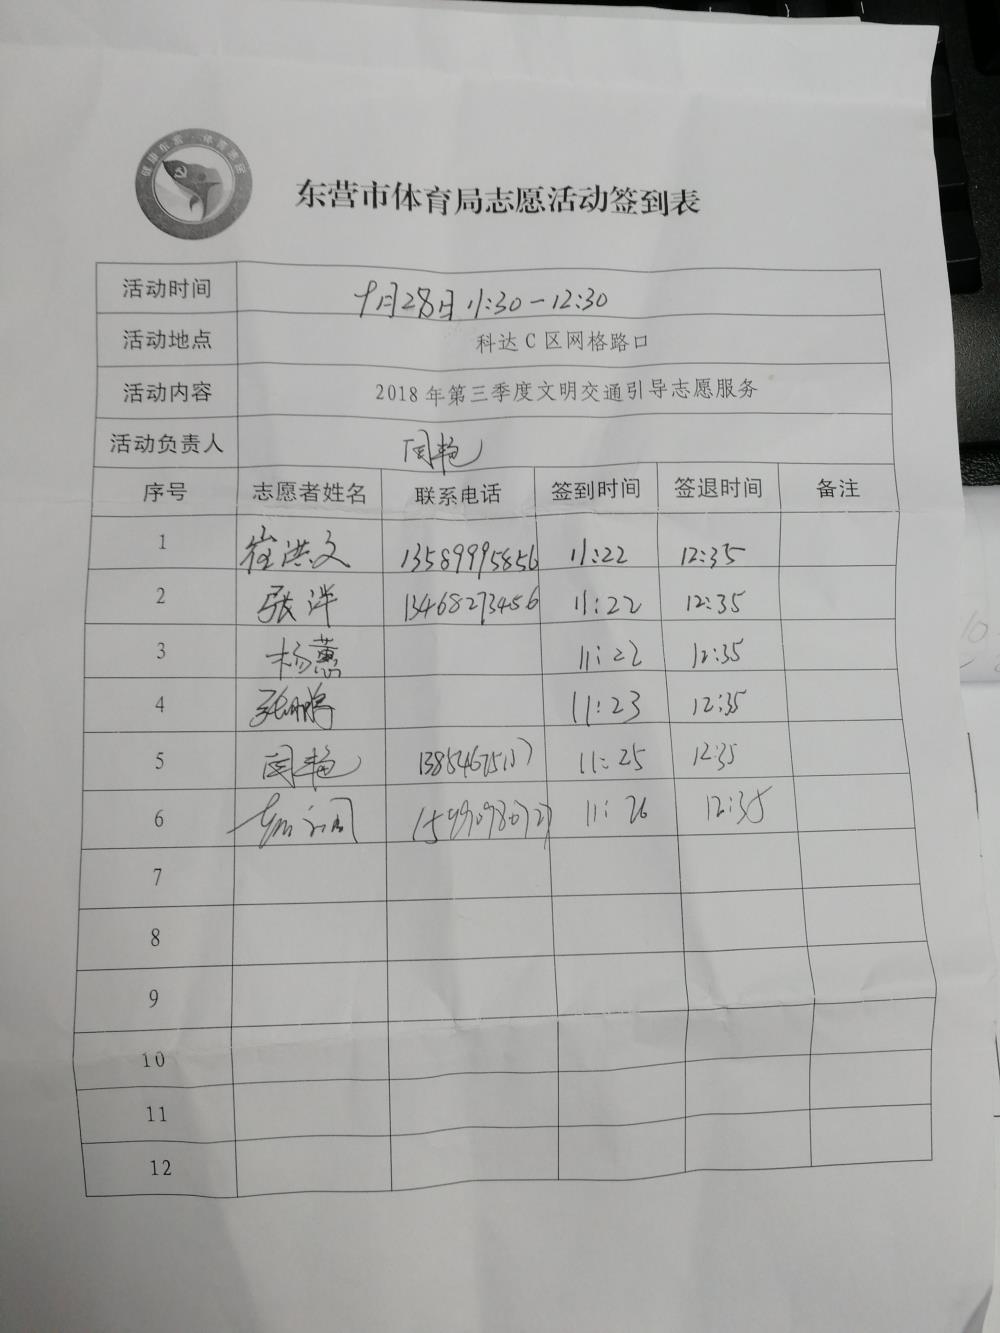 健康东营 体育惠民
东营市体育局志愿活动签到表
活动时间 9月28日 11:30-12:30
活动地点 科达C区网格路口
活动内容 2018年第三季度文明交通引导志愿服务
活动负责人 闫艳
序号 志愿者姓名 联系电话 签到时间 签退时间 备注
1 崔洪文 13589995856 11:22 12:35
2 张洋 13468273456 11:22 12:35
3 杨蕙 11:22 12:35
4 张鹏 11:23 12:35
5 闫艳 11:25 12:35
6 11:26 12:35
7
8
9
10
11
12